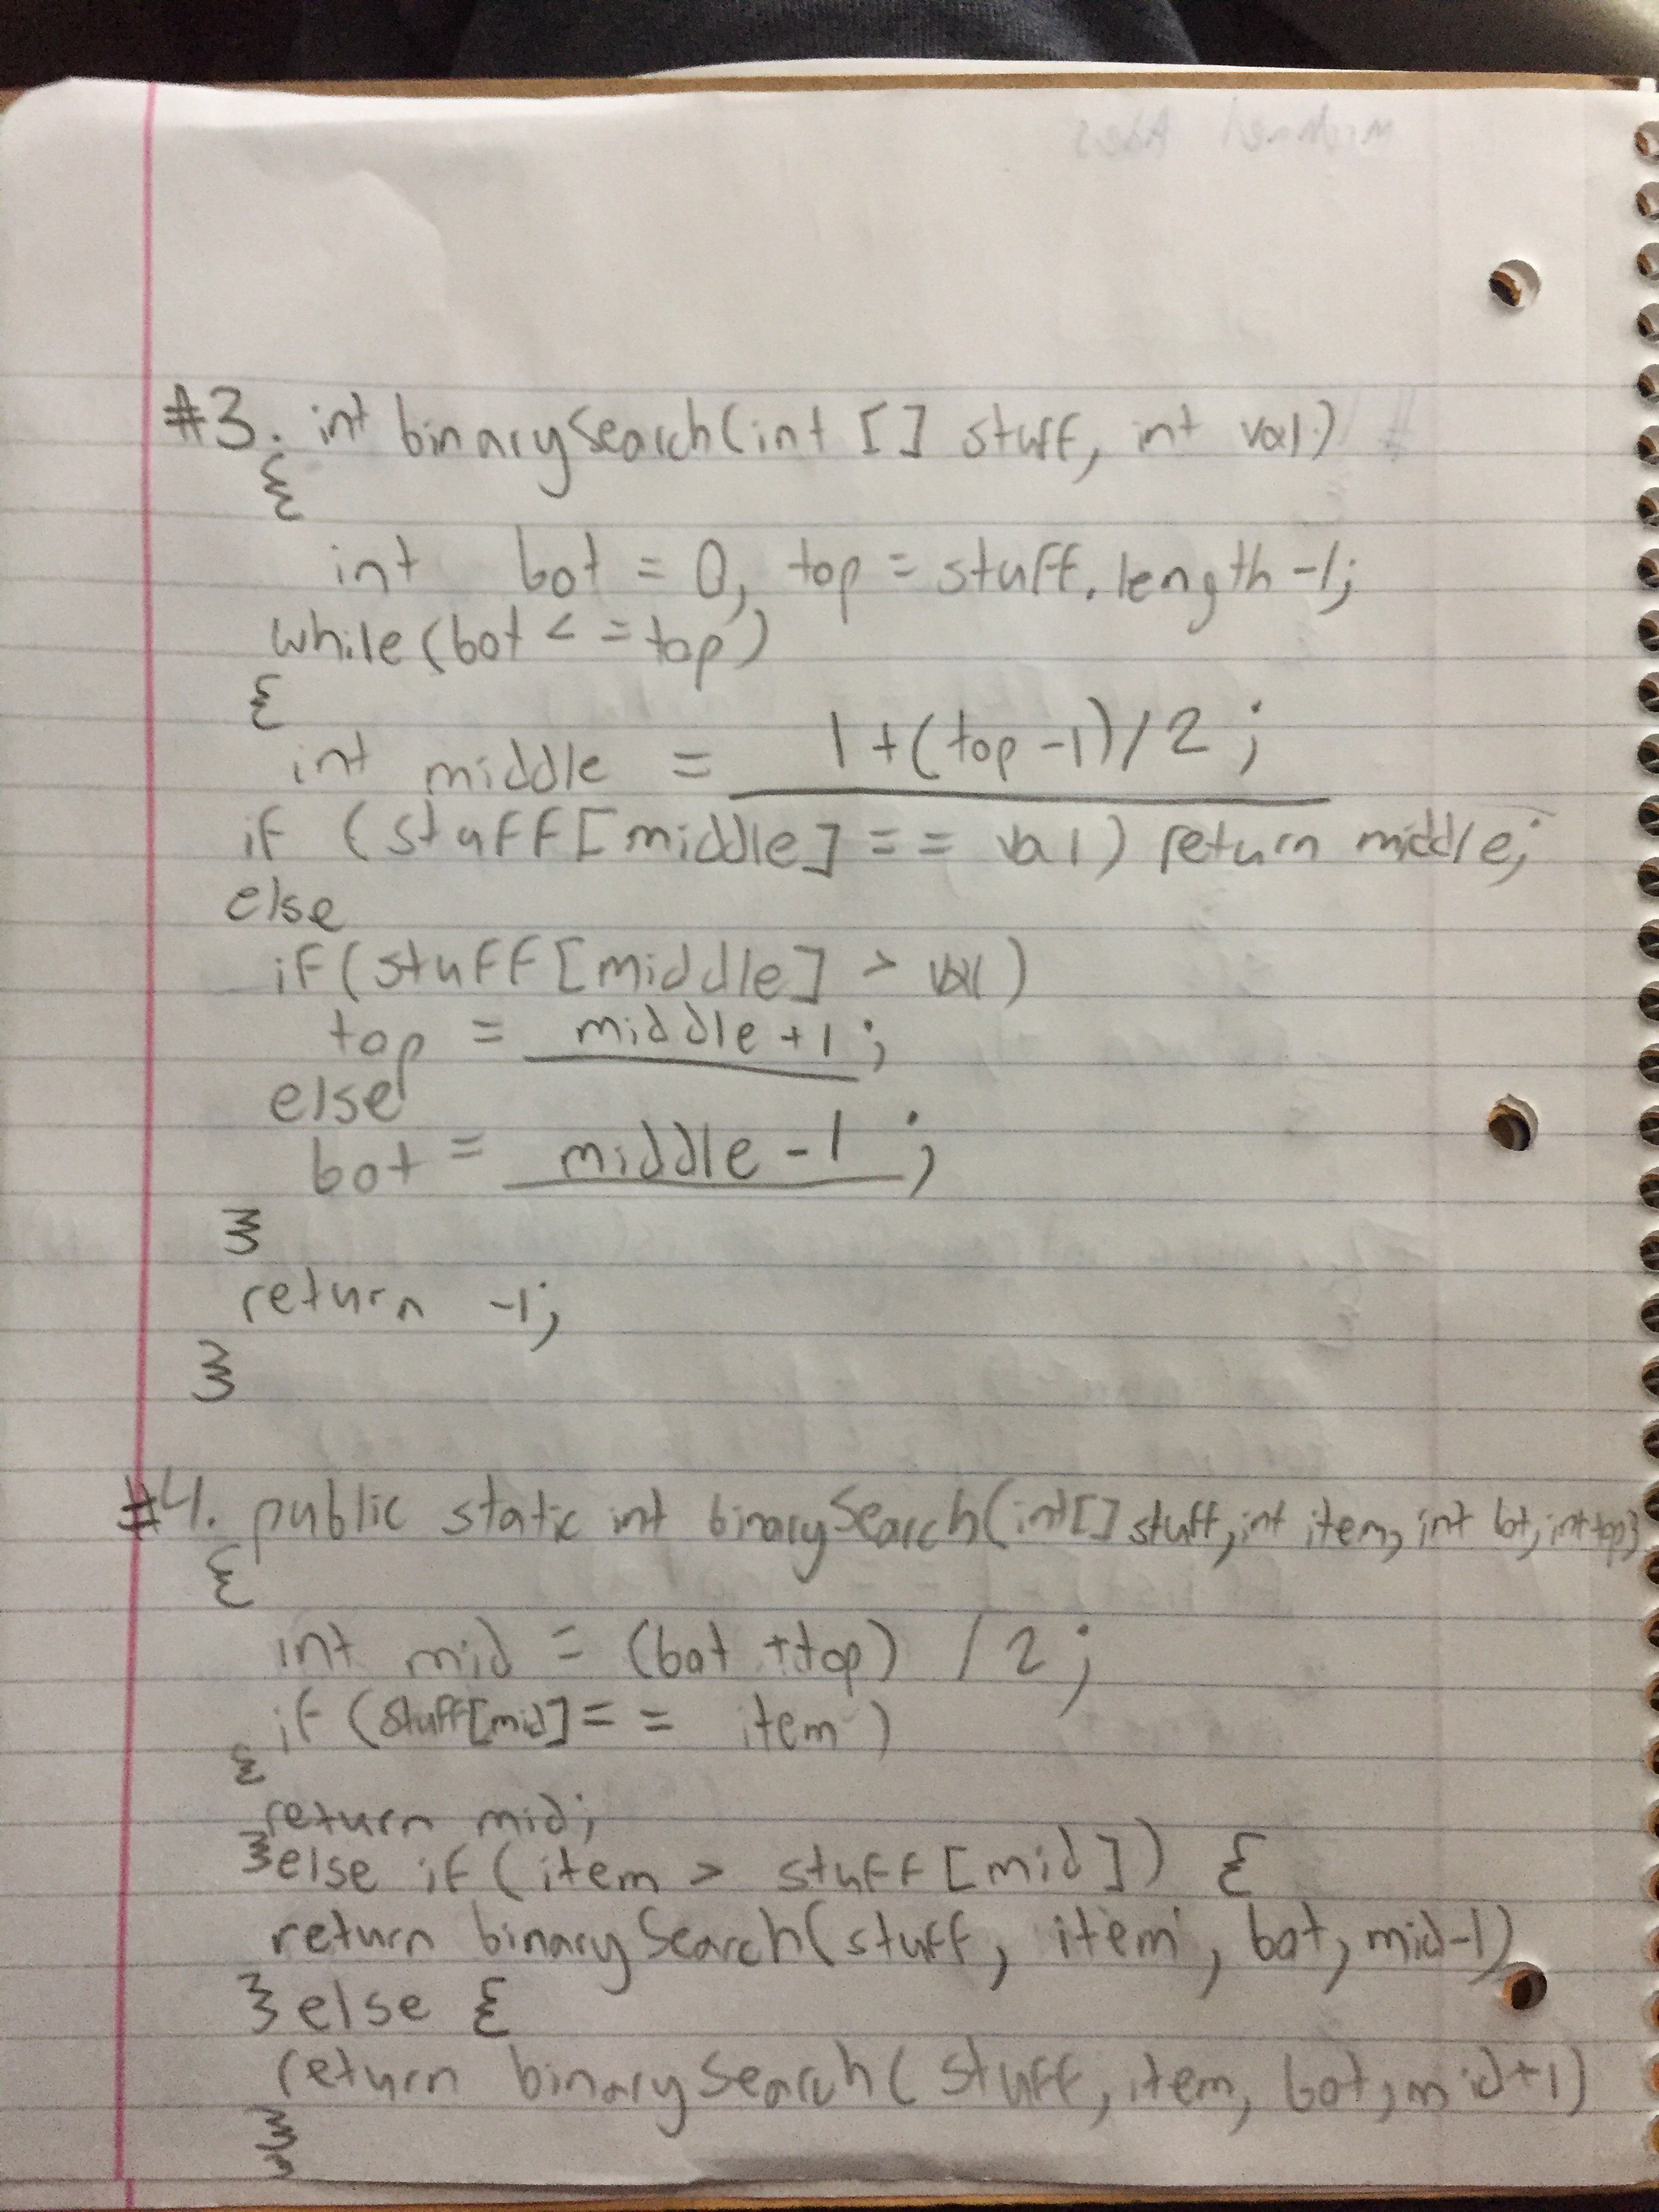 #3. int binarySearch(int [] stuff, int val)
{
int bot = 0, top = stuff.length -1;
while (bot < = top)
{
int middle = 1+(top -1)/2;
if (stuff[middle] == val) return middle;
else
if(stuff[middle] > val)
top = middle+1;
else
bot = middle -1;
}
return -1;
}
#4. public static int binarySearch(int[] stuff, int item, int bot, int top)
{
int mid = (bot +top) / 2;
if (stuff[mid] == item)
{
return mid;
}else if (item > stuff[mid]) {
return binarySearch(stuff, item, bot, mid-1)
} else {
return binarySearch(stuff, item, bot, mid+1)
}
}